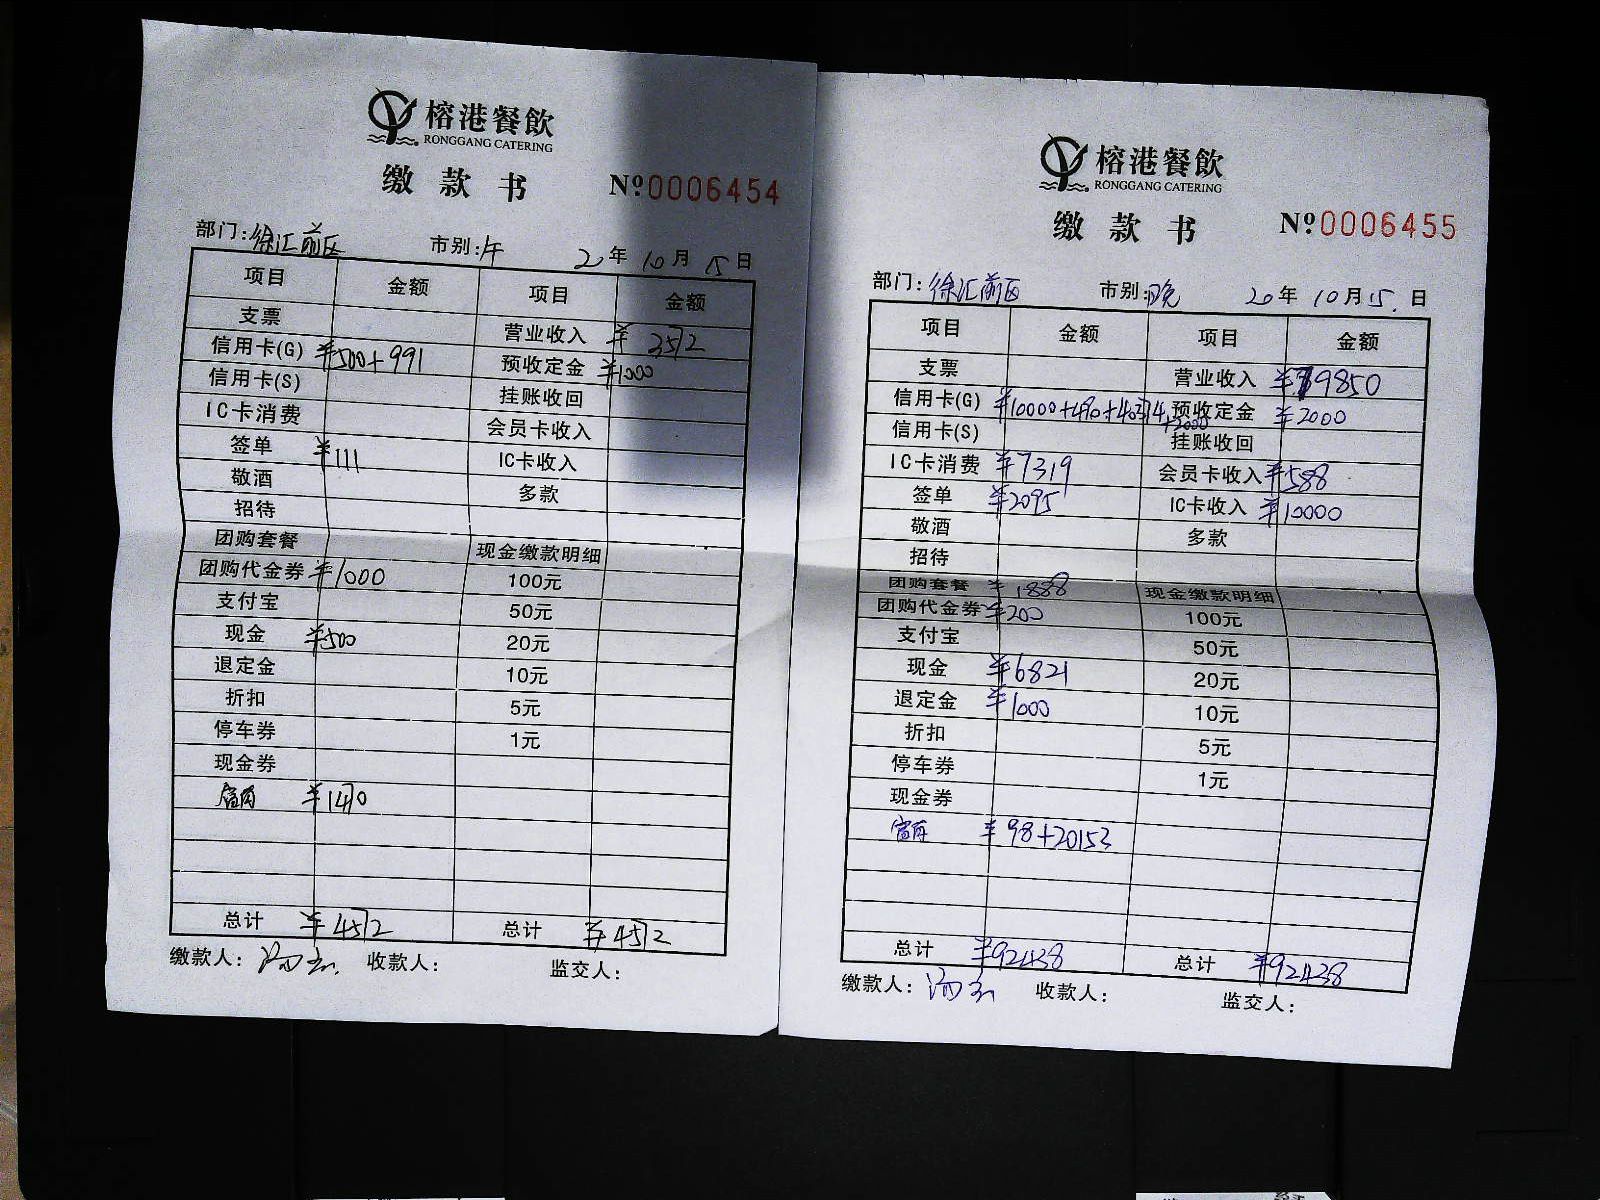 榕港餐飲
RONGGANG CATERING
缴 款 书 Nº0006454
部门:徐汇前区 市别:午 20 年 10 月 15 日
项目 金额 项目 金额
支票 营业收入 ¥3572
信用卡(G) ¥500+991 预收定金 ¥1000
信用卡(S) 挂账收回
IC卡消费 会员卡收入
签单 ¥111 IC卡收入
敬酒 多款
招待
团购套餐 现金缴款明细
团购代金券 ¥1000 100元
支付宝 50元
现金 ¥500 20元
退定金 10元
折扣 5元
停车券 1元
现金券
¥1470
总计 ¥4572 总计 ¥4572
缴款人: 收款人: 监交人:
榕港餐飲
RONGGANG CATERING
缴 款 书 Nº0006455
部门:徐汇前区 市别:晚 20 年 10 月 15 日
项目 金额 项目 金额
支票 营业收入 ¥79850
信用卡(G) ¥10000+490+40374+2000 预收定金 ¥2000
信用卡(S) 挂账收回
IC卡消费 ¥7319 会员卡收入 ¥588
签单 ¥2095 IC卡收入 ¥10000
敬酒 多款
招待
团购套餐 ¥1888 现金缴款明细
团购代金券 ¥200 100元
支付宝 50元
现金 ¥6821 20元
退定金 ¥1000 10元
折扣 5元
停车券 1元
现金券
¥98+20153
总计 ¥92438 总计 ¥92438
缴款人: 收款人: 监交人: